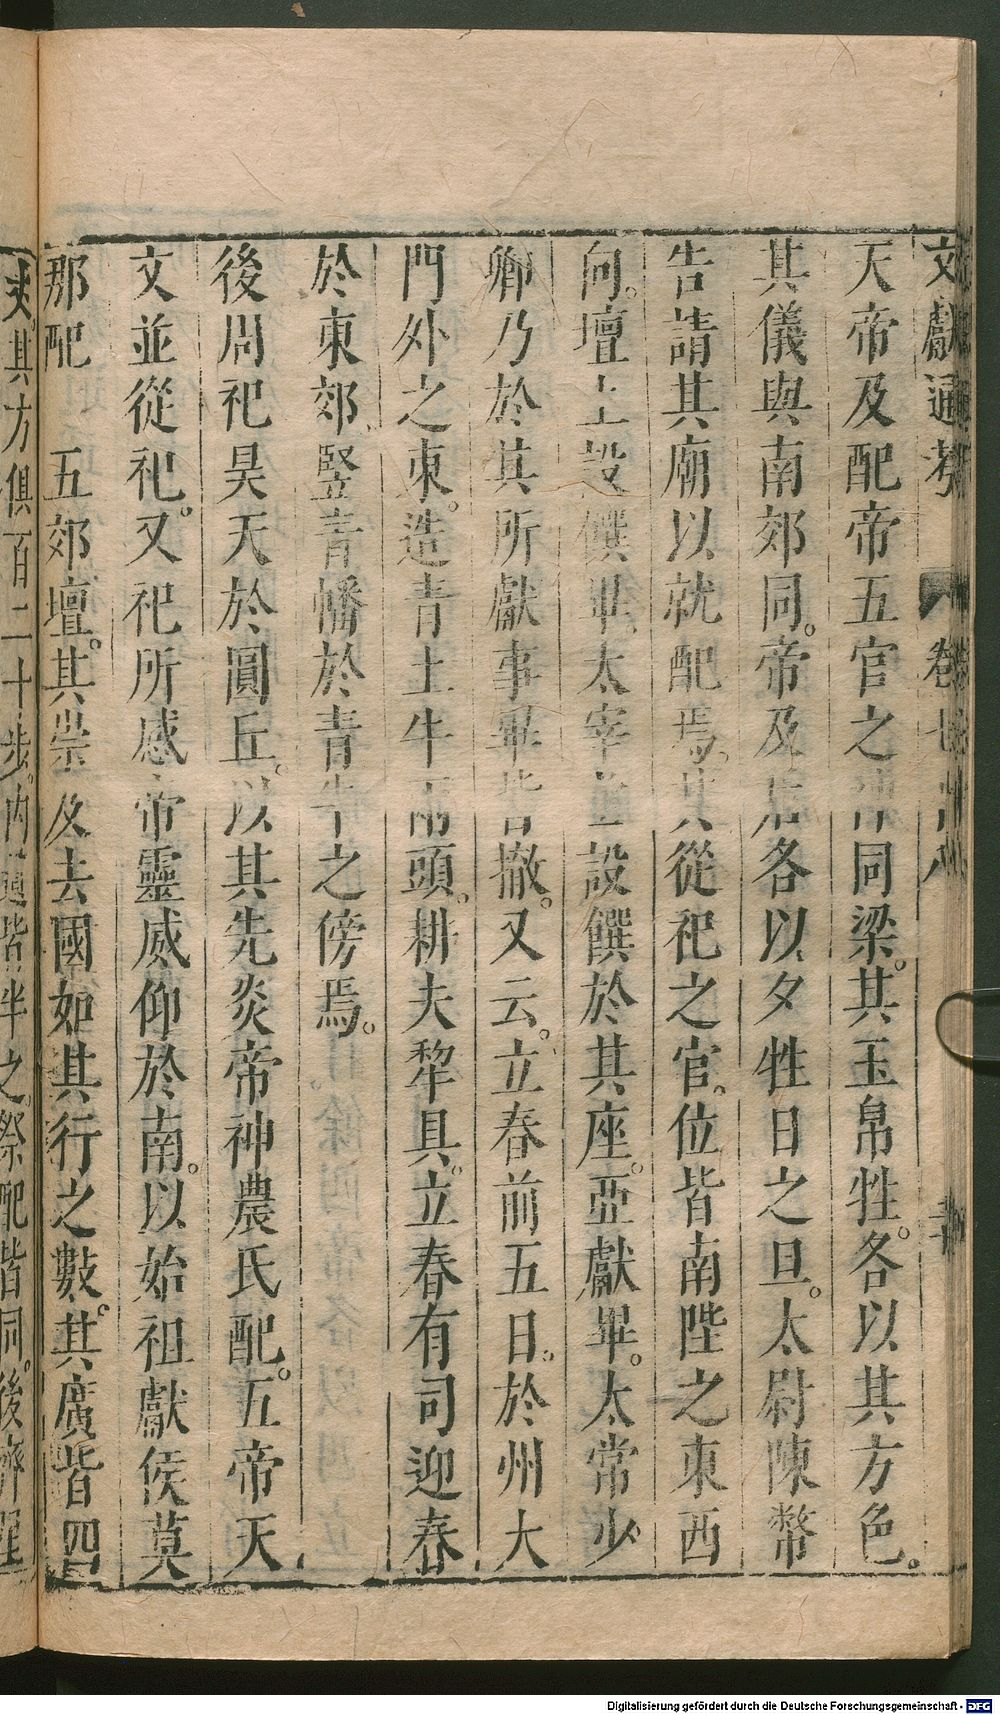 文獻通考 卷七十八
天帝及配帝五官之神同梁。其玉帛牲。各以其方色。
其儀與南郊同。帝及后各以夕牲日之旦。太尉陳幣
告請其廟以就配焉。其從祀之官。位皆南陛之東西
向。壇上設饌畢。太宰丞設饌於其座。亞獻畢。太常少
卿乃於其所獻事畢皆撤。又云。立春前五日。於州大
門外之東。造青土牛兩頭。耕夫犂具。立春有司迎春
於東郊。竪青幡於青牛之傍焉。
後周祀昊天於圓丘。以其先炎帝神農氏配。五帝天
文並從祀。又祀所感帝靈威仰於南。以始祖獻侯莫
那配 五郊壇。其崇及去國如其行之數。其廣皆四
丈。其方俱百二十步。內壝皆半之。祭配皆同。後齊星
Digitalisierung gefördert durch die Deutsche Forschungsgemeinschaft - DFG